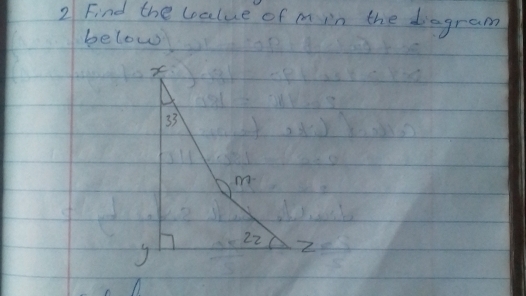 2 Find the value of m in the diagram
below
x
33
m
y
22
z